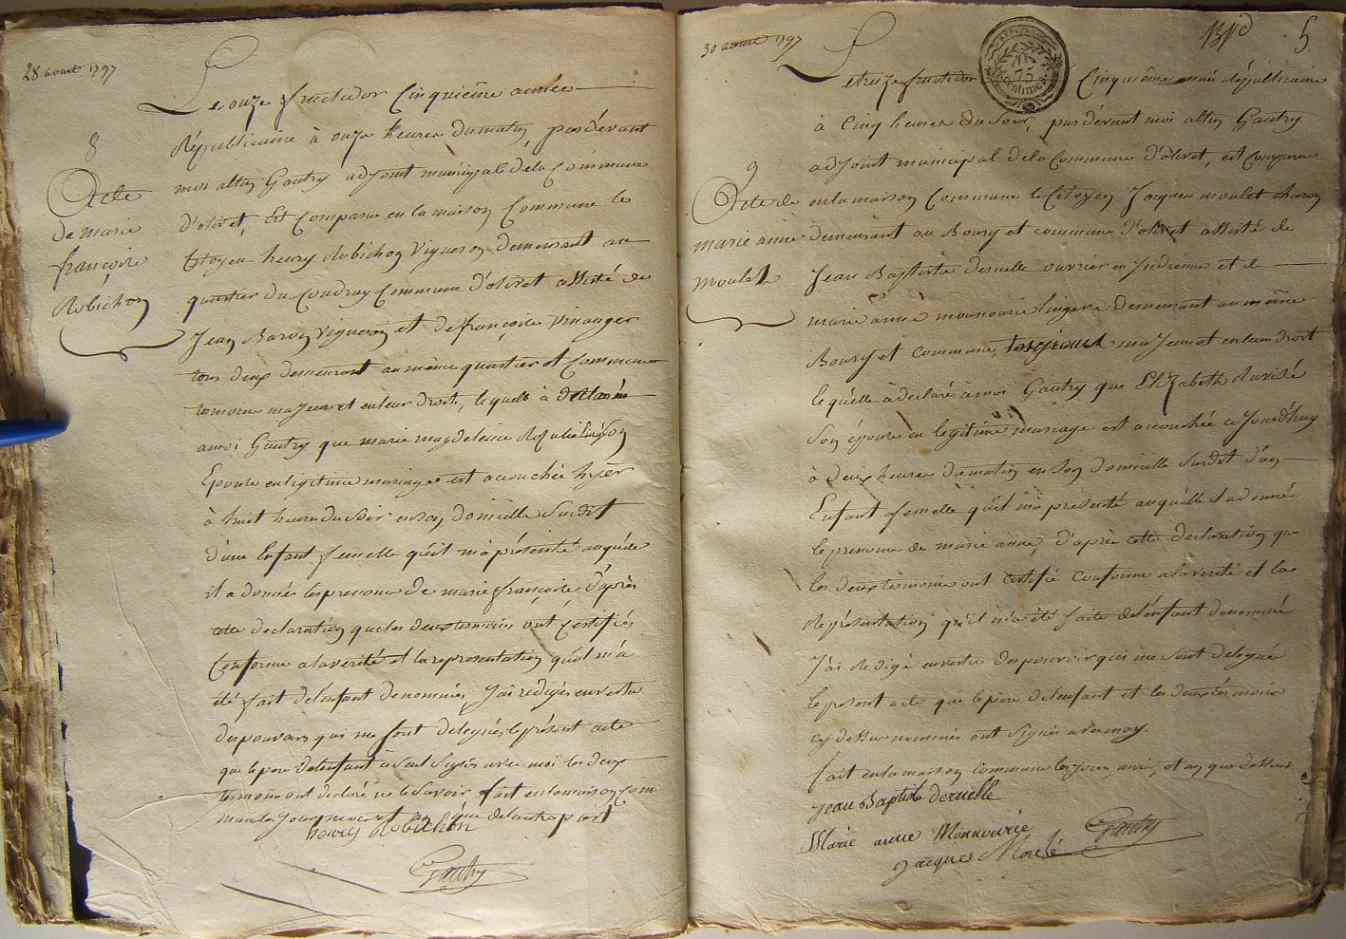 28 aout 1797
8
Acte
de marie
françoise
Robichon
Le onze fructidor Cinquième année
Républicaine à onze heures du matin, pardévant
moi altin Gautry adjoint municipal de la Commune
d'olivet, Est Comparu en la maison Commune le
Citoyen henry Robichon Vigneron demeurant au
quartier du Coudray Commune d'olivet assisté de
Jean Baron Vigneron et de françoise
tous deux demeurant au même quartier et Commune
temoins majeurs et en leur droits, lequelle à déclaré
amoi Gautry que marie magdeleine
Epouse en legitime mariage est acouchée hyèr
à huit heures du Soir en son domicille Surdit
d'une Enfant femelle qu'il m'à présenté auquéle
il a donnés les prenoms de marie françoise d'après
cette declaration que les deux temoins ont Certifiés
Conforme a la verité et la representation qu'il m'a
été fait de l'enfant denommés, J'ai rédigés en vertu
du pouvoirs qui me sont délégués le présent acte
que le pere de l'enfant a seul Signés avec moi les deux
temoins ont declaré ne le Savoir fait en la maison Com
mune les jour mois et an
henry Robichon
Gautry
30 aoust 1797
5
9
Acte de
marie anne
Moulet
Le treize fructidor Cinquième année républicaine
à Cinq heures du Soir, pardévant moi altin Gautry
adjoint municipal de la Commune d'olivet, est Comparu
en la maison Commune le Citoyen Jacques moulet
demeurant au Bourg et commune d'olivet assisté de
Jean Baptiste deruelle ouvrier en Indienne et de
marie anne lingere Demeurant au même
Bourg et commune, majeurs et en leur droit
lequélle à déclaré à moi Gautry que Elizabeth
Son épouse en legitime mariage est acouchée ce Jourd'huy
à deux heures du matin en Son domicille Surdit d'un
Enfant femelle qu'il m'a presenté auquélle il a donné
le prenoms de marie anne, d'après cette declaration que
les deux temoins ont certifié conforme a la verité et la
Représentation qu'il m'a été faite de l'enfant denommé
J'ai Redigé en vertu du pouvoir qui me sont delegué
le present acte que le pere de l'enfant et les deux témoins
cy dessus nommés ont Signés avec moy.
fait en la maison commune les jour, mois, et an que dessus
Jean Baptiste deruelle
Marie anne
Jacques Gautry